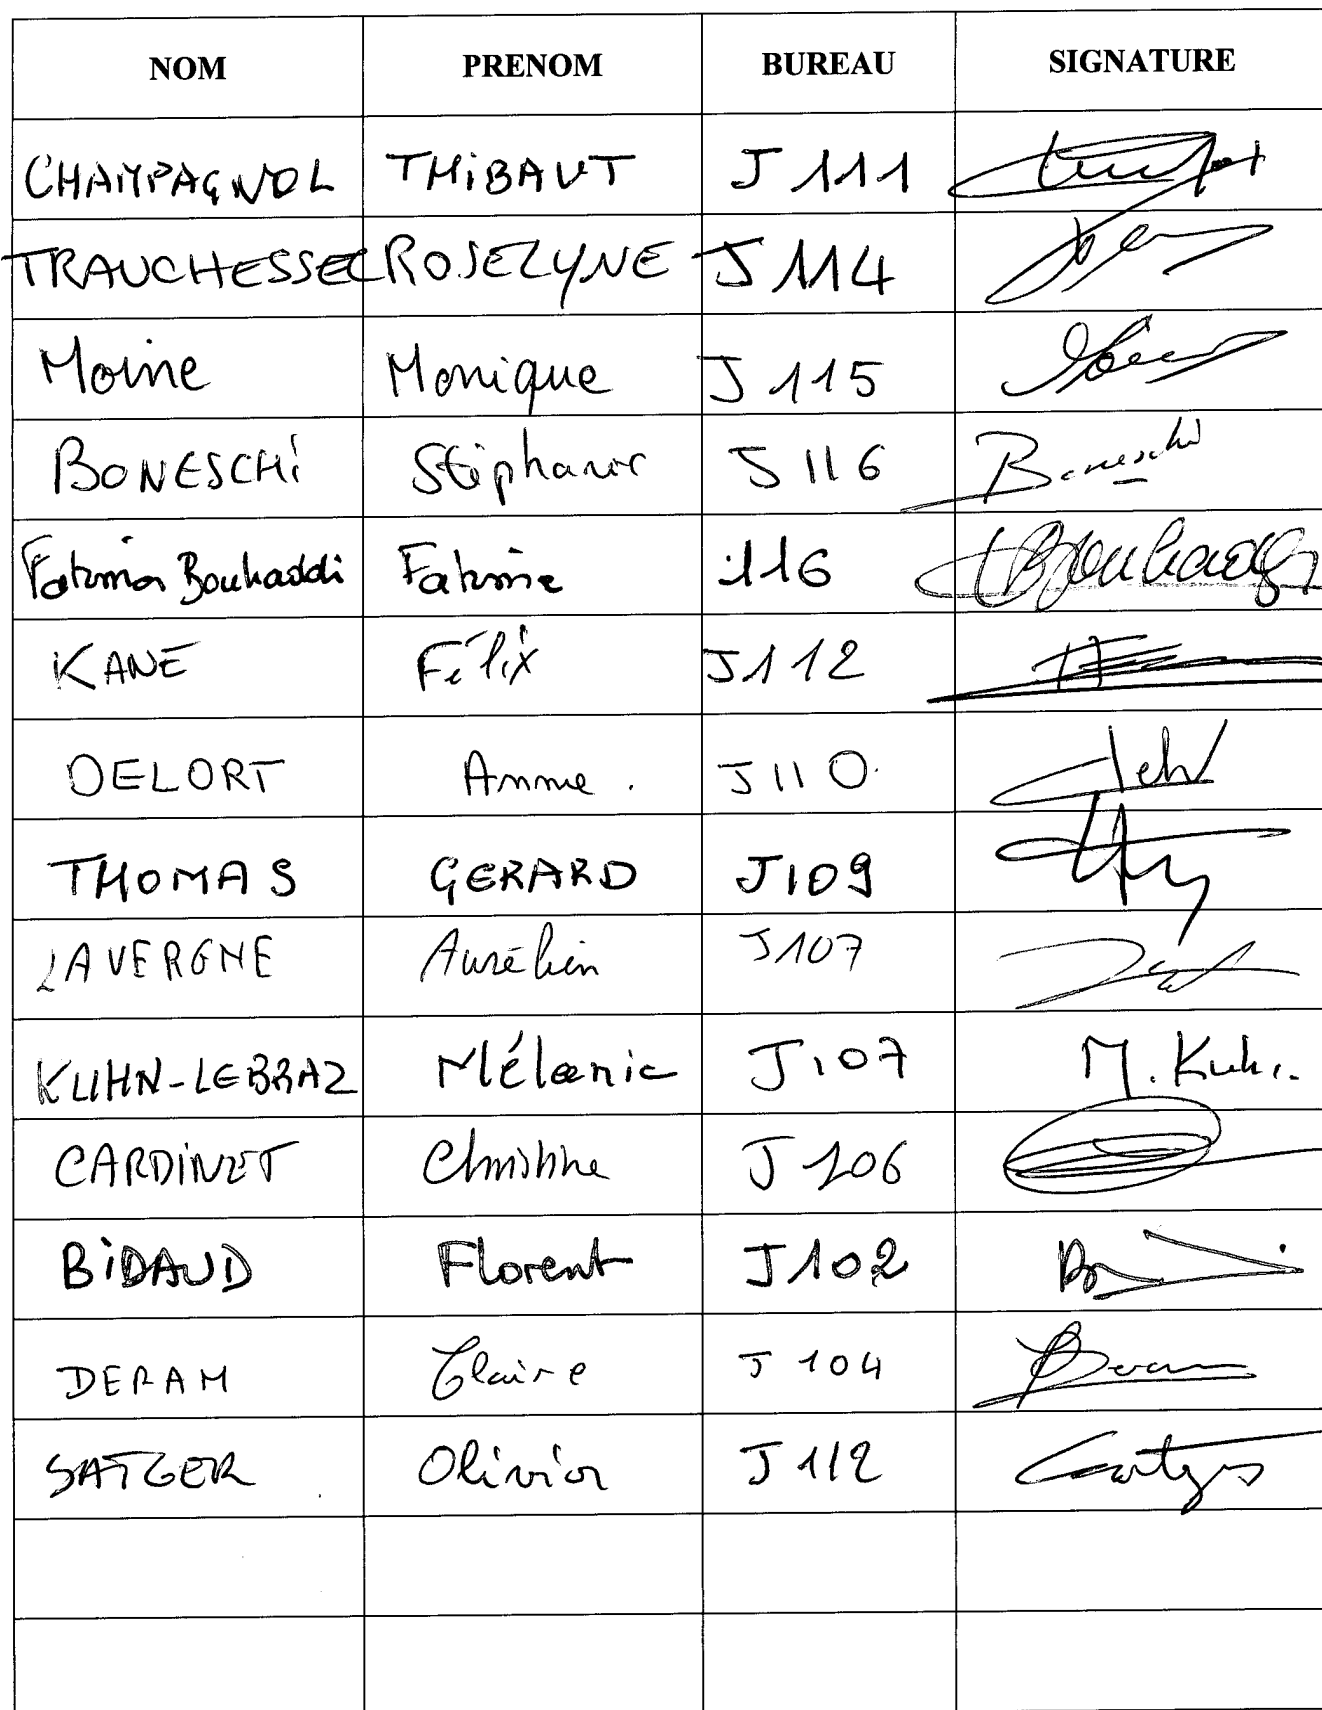 NOM PRENOM BUREAU SIGNATURE
CHAMPAGNOL THiBAUT J 111
TRAUCHESSEC ROSELYNE J 114
Moine Monique J 115
BONESCHi Stéphanie J 116 Boneschi
Fatima Bouhaddi Fatima 116 Bouhaddi
KANE Félix J112
DELORT Annie. J110.
THOMAS GERARD J109
LAVERGNE Aurélien J107
KUHN-LEBRAZ Mélanie J107 M. Kuhn.
CARDiNET Christine J 106
BiDAUD Florent J102
DERAM Claire J 104
SATGER Olivier J 112